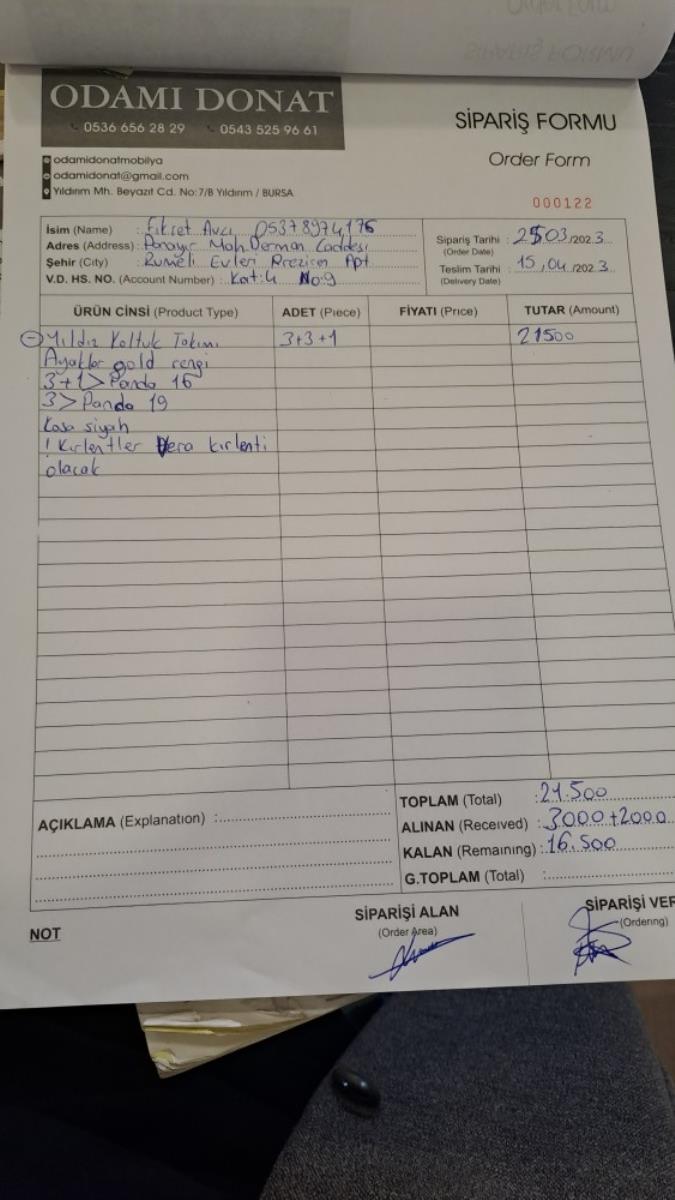 ODAMI DONAT
0536 656 28 29 0543 525 96 61
SİPARİŞ FORMU
Order Form
odamidonatmobilya
odamidonat@gmail.com
Yıldırım Mh. Beyazıt Cd. No:7/B Yıldırım / BURSA
000122
İsim (Name) : Fikret Avcı 05378974176
Adres (Address) : Panayır Mah Derman Caddesi
Şehir (City) : Rumeli Evleri Prezicen Apt
V.D. HS. NO. (Account Number) : Kat:4 No:9
Sipariş Tarihi : 25.03/2023
(Order Date)
Teslim Tarihi : 15.04/2023
(Delivery Date)
ÜRÜN CİNSİ (Product Type) ADET (Piece) FİYATI (Price) TUTAR (Amount)
Yıldız Koltuk Takımı 3+3+1 21500
Ayaklar gold rengi
3+1> Panda 16
3> Panda 19
Kasa siyah
! Kırlentler Vera kırlenti
olacak
AÇIKLAMA (Explanation) :
TOPLAM (Total) : 21.500
ALINAN (Received) : 3000+2000
KALAN (Remaining) : 16.500
G.TOPLAM (Total) :
SİPARİŞİ ALAN
(Order Area)
SİPARİŞİ VER
(Ordering)
NOT